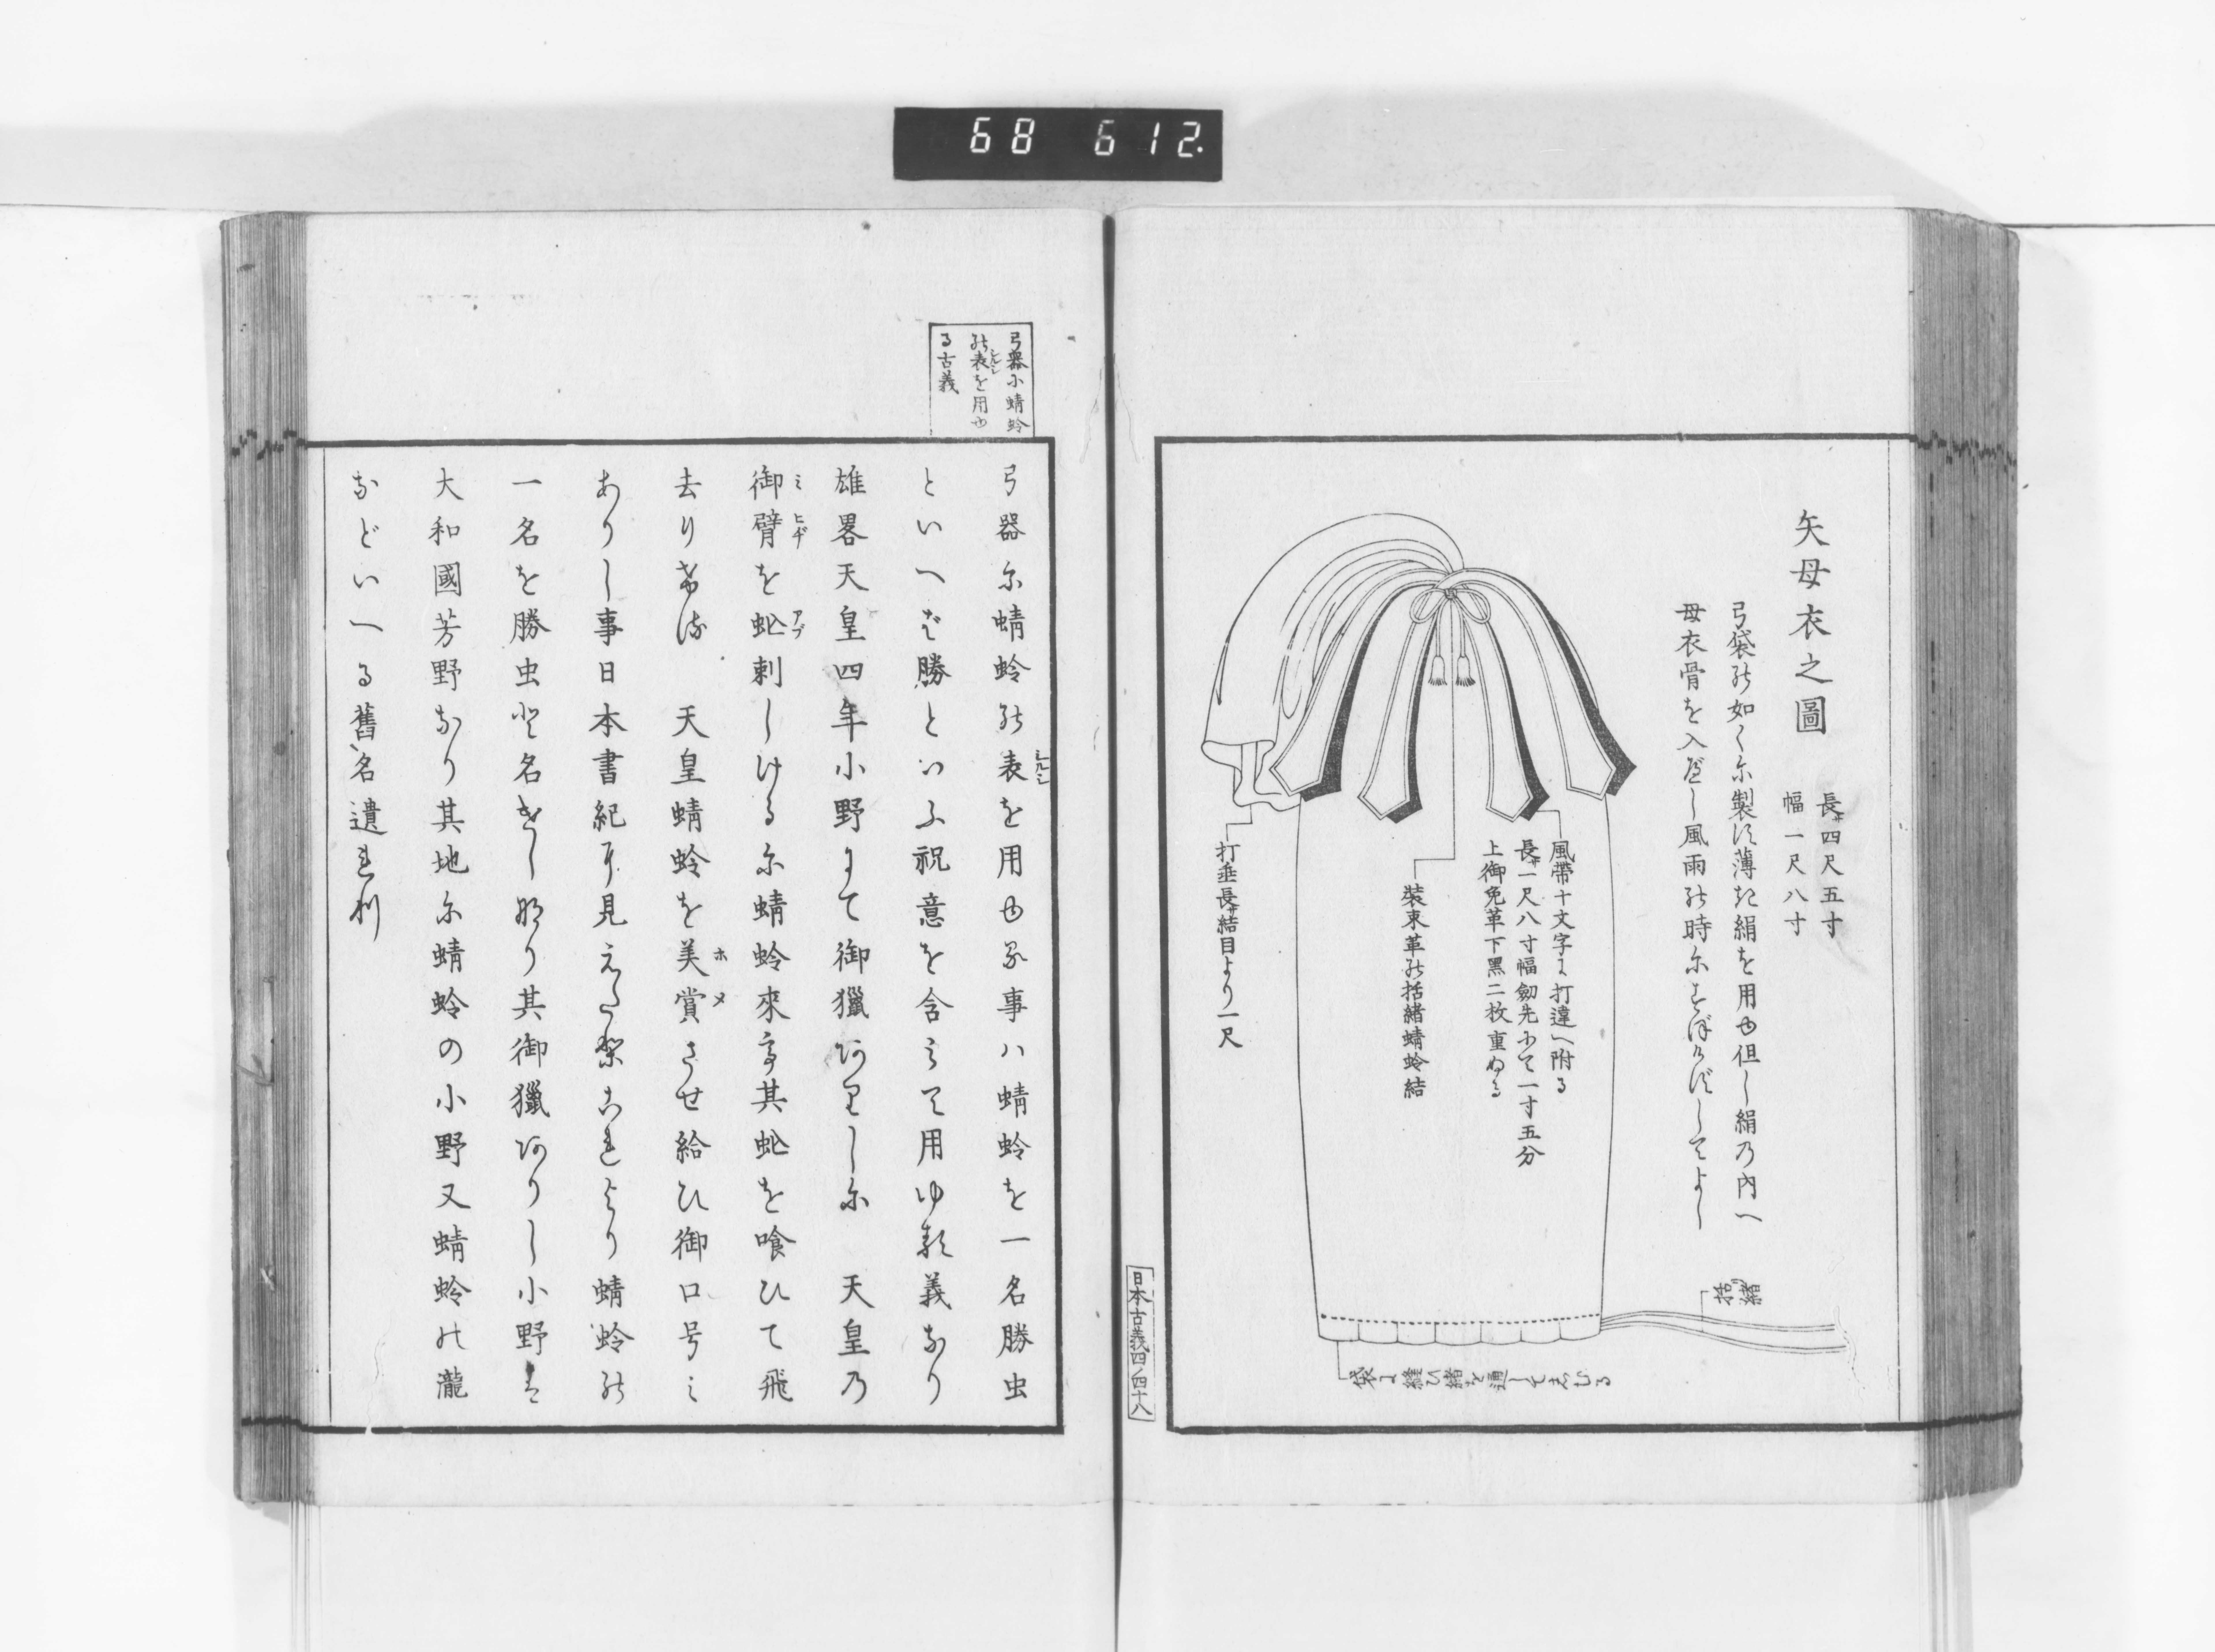 68 612
矢母衣之圖
長サ四尺五寸
幅一尺八寸
弓袋能如く尓製須薄き絹を用ゆ但し絹乃内へ
母衣骨を入遍し風雨能時尓者
括り緒
風帶十文字に打違へ附る
長サ一尺八寸幅劔先尓て一寸五分
上御免革下黑二枚重ぬる
裝束革能括緒蜻蛉結
打垂長サ結目より一尺
袋に縫ひ緒を通してしむる
日本古義四ノ四十八
弓器小蜻蛉
能表シルシを用ゆ
る古義
弓器尓蜻蛉能表シルシを用ゆる事ハ蜻蛉を一名勝虫
といへば勝といふ祝意を含みて用ゆ義なり
雄畧天皇四年小野にて御獵阿里し尓　天皇乃
御ミ臂ヒヂを虻アブ刺しける尓蜻蛉來て其虻を喰ひて飛
去り希流　天皇蜻蛉を美ホ賞メさせ給ひ御口号ミ
ありし事日本書紀耳見えたりこれより蜻蛉能
一名を勝虫と名つけしなり其御獵阿りし小野は
大和國芳野なり其地尓蜻蛉の小野又蜻蛉能瀧
などいへる舊名遺れ利